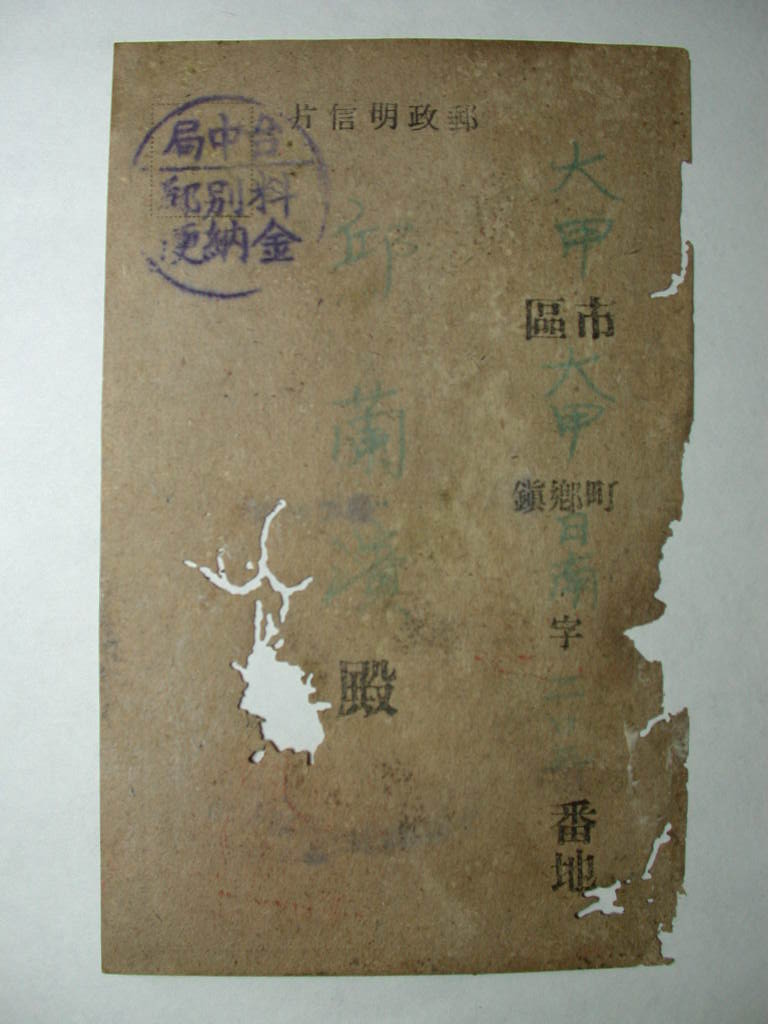 郵政明信片
台中局
料金
別納
郵便
大甲
市區
大甲
町鄉鎮
日南
字
番地
邱蘭濱
殿